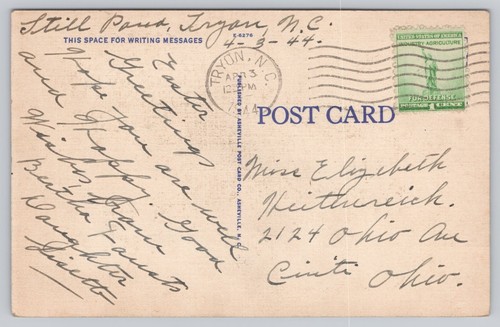 Still Pond, Tryon, N.C.
THIS SPACE FOR WRITING MESSAGES
E-5276
4-3-44.
Easter
Greetings
Hope you are well
and Happy. Good
Wishes from
Bertha Fausts
Daughter
Lisette
PUBLISHED BY ASHEVILLE POST CARD CO., ASHEVILLE, N.
TRYON, N.C.
APR 3
PM
POST CARD
UNITED STATES OF AMERICA
INDUSTRY AGRICULTURE
FOR DEFENSE
1 CENT
Miss Elizabeth
Heithereich.
2124 Ohio Ave
Cinti Ohio.